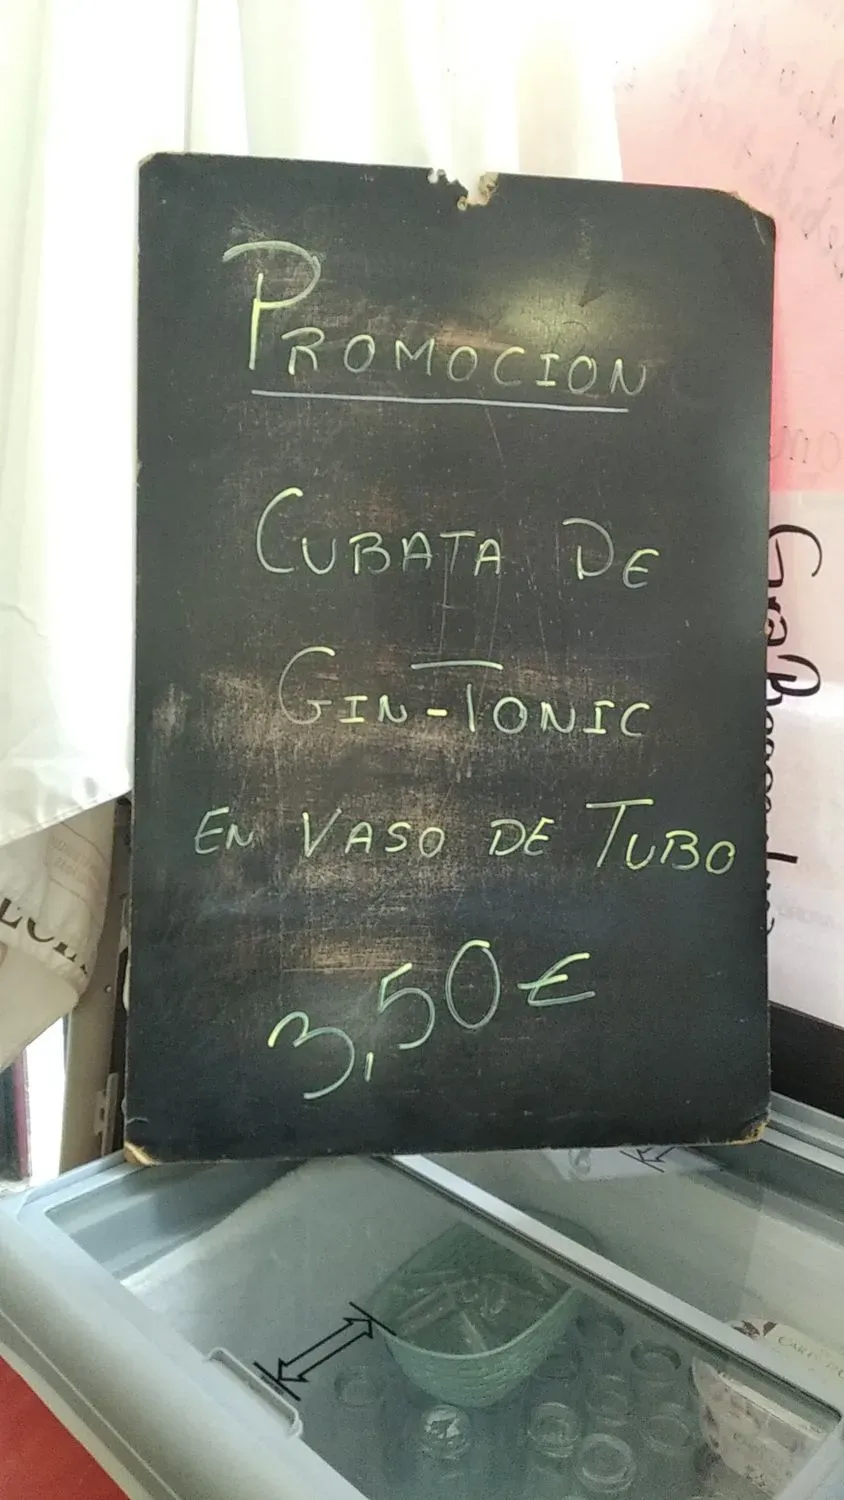 PROMOCION
CUBATA DE
GIN-TONIC
EN VASO DE TUBO
3,50€